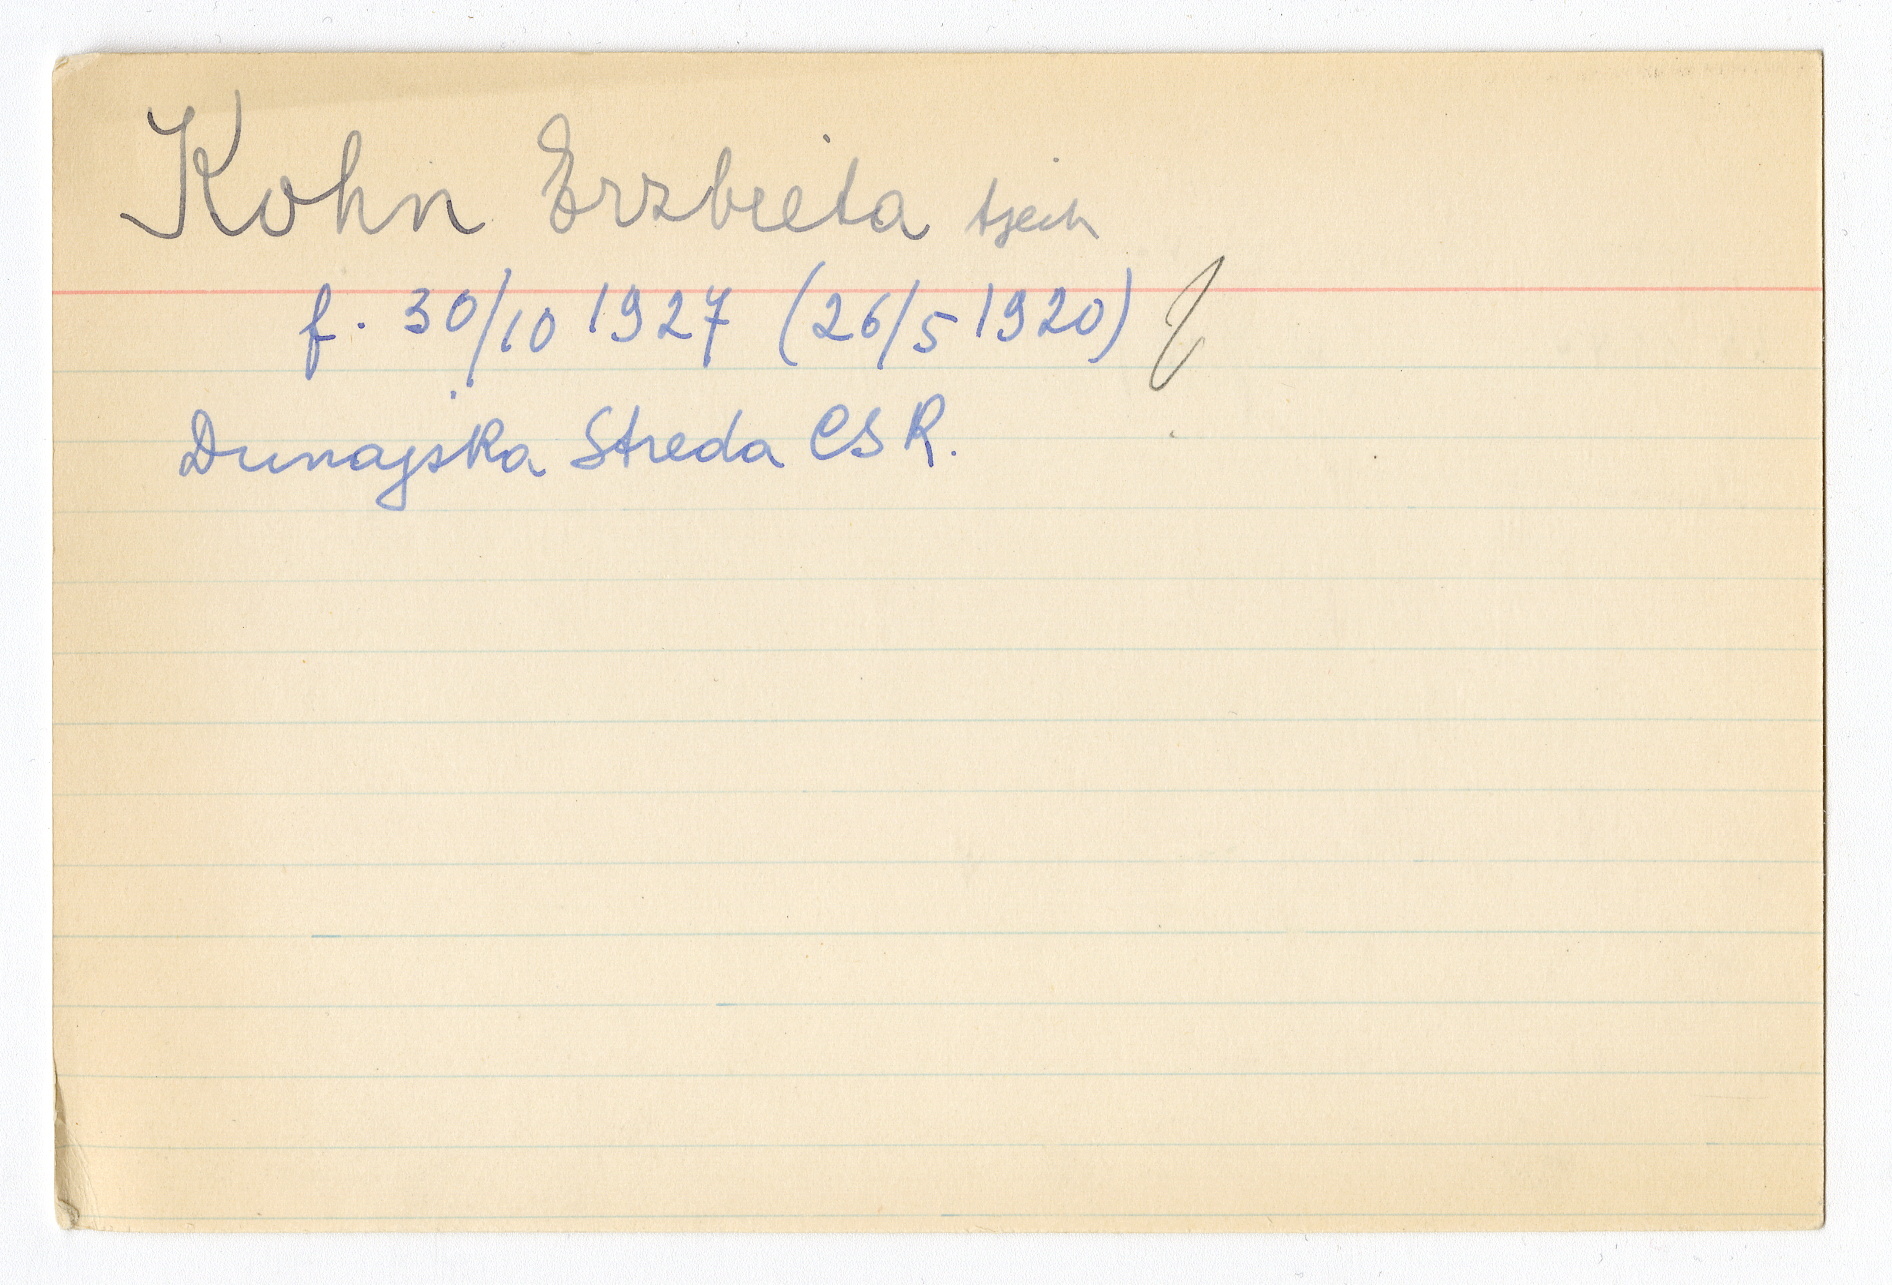 Kohn Erzbieta tjech
f. 30/10 1927 (26/5 1920)
Dunajska Streda CSR.